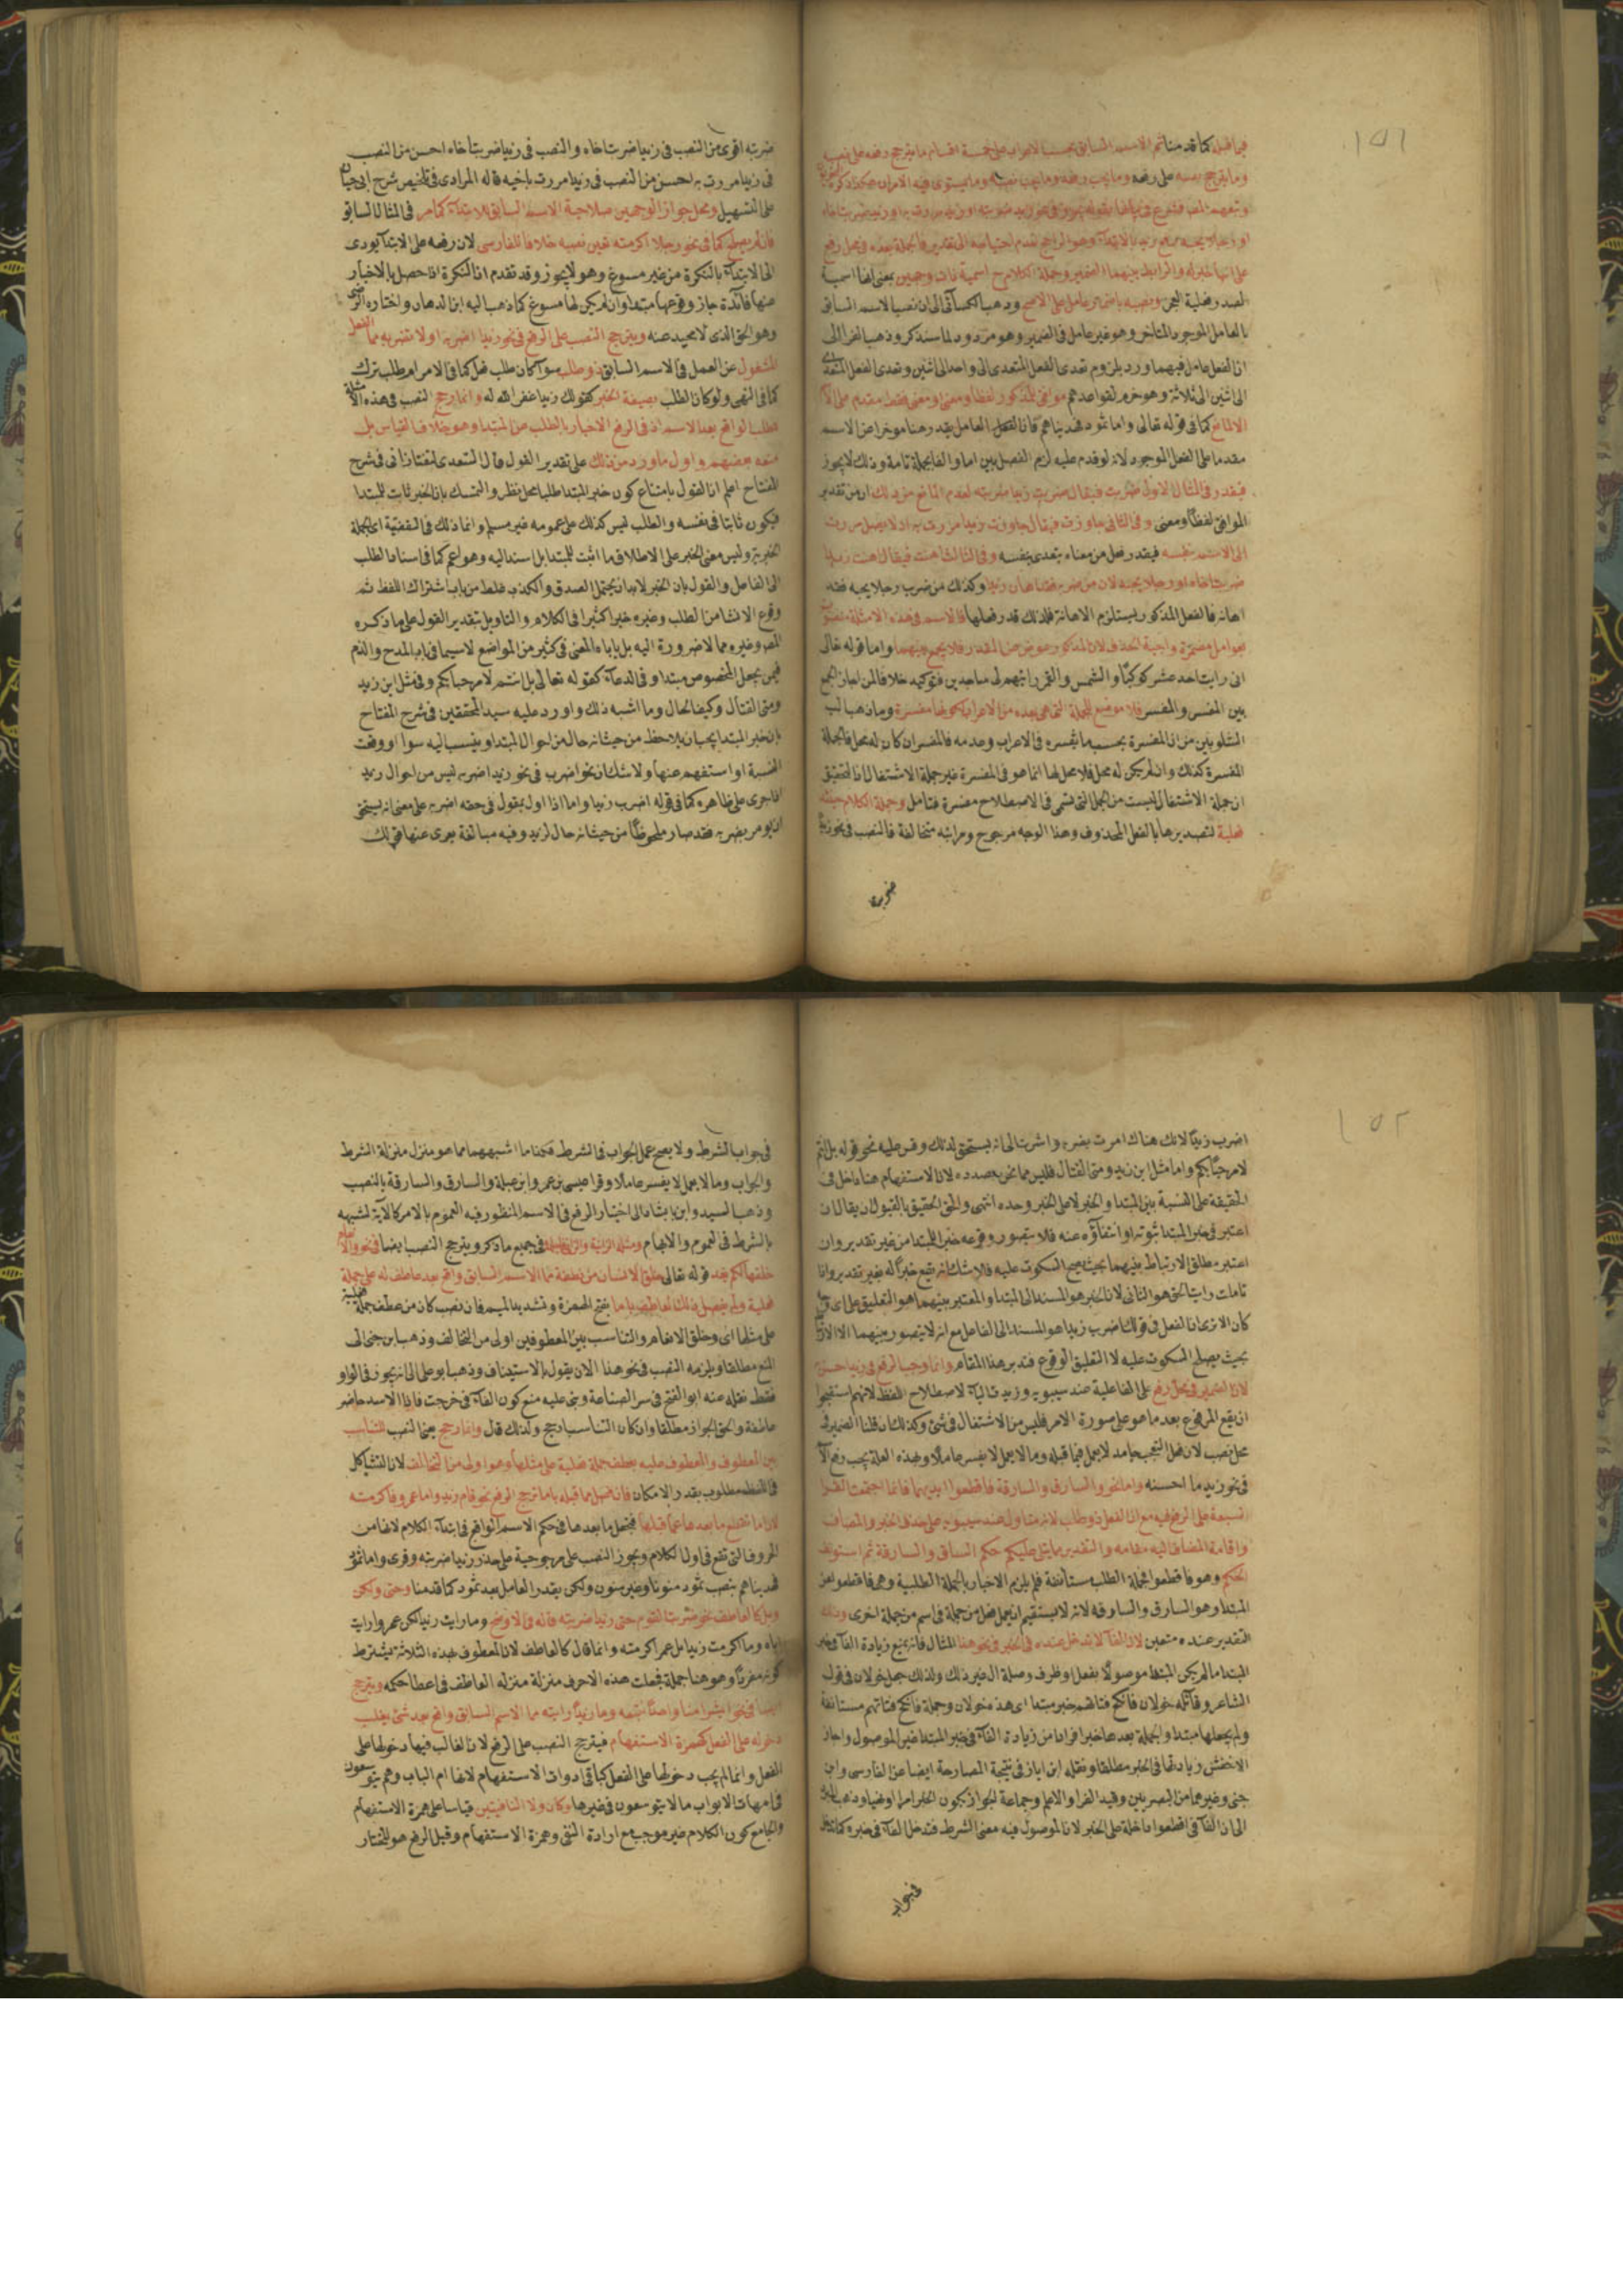 ١٥١
فيما قبله كما قدمنا ثم الاسم السابق بحسب الاعراب على خمسة اقسام ما يترجح رفعه على نصبه
وما يترجح نصبه على رفعه وما يجب رفعه وما يجب نصبه وما يستوى فيه الامران
او رجلا يحبه
على انها خبر له والرابط بينهما الضمير وجملة الكلام ح اسمية ذات وجهين بمعنى انها اسمية
الصدر فعلية العجز ونصبه باضمار عامل على الاصح وذهب الكسآئى الى ان نصب الاسم السابق
بالعامل الموجود المتاخر وهو غير عامل فى الضمير وهو مردود لما سنذكر وذهب الفرا الى
ان الفعل عامل فيهما ورد بلزوم تعدى الفعل المتعدى الى واحد الى اثنين وتعدى الفعل المتعدى
الى اثنين الى ثلاثة وهو خرم لقواعدهم موافق للمذكور لفظا ومعنى او معنى فقط مقدم
الا لمانع كما فى قوله تعالى واما ثمود فهديناهم فان العامل يقدر هنا موخرا عن الاسم
مقدما على الفعل الموجود لانه لو قدم عليه لزم الفصل بين اما والفا بجملة تامة وذلك لا يجوز
فيقدر فى المثال الاول ضربت فيقال ضربت زيدا ضربته لعدم المانع من ذلك
الموافق لفظا ومعنى وفى الثانى جاوزت فيقال جاوزت زيدا مررت به اذ لا يصل مررت
الى الاسم بنفسه فيقدر فعل من معناه يتعدى بنفسه وفى الثالث اهنت فيقال اهنت زيدا
ضربت اخاه او رجلا يحبه لان من ضرب اخاه اهان زيدا وكذلك من ضرب رجلا يحبه فقد
اهانه فالفعل المذكور يستلزم الاهانة فلذلك قدر فعلها فالاسم فى هذه الامثلة منصوب
بعوامل مضمرة واجبة الحذف لان المذكور عوض من المقدر فلا يجمع بينهما واما قوله تعالى
انى رايت احد عشر كوكبا والشمس والقمر رايتهم لى ساجدين فتوكيد خلافا لمن اجاز الجمع
بين المفسر والمفسر فلا موضع للجملة التى هى بعده من الاعراب لكونها مفسرة وما ذهب اليه
الشلوبين من ان المفسرة بحسب ما تفسره فى الاعراب وعدمه فالمفسر ان كان له محل فالجملة
المفسرة كذلك وان لم يكن له محل فلا محل لها انما هو فى المفسرة غير جملة الاشتغال اذ التحقيق
ان جملة الاشتغال ليست من الجمل التى تسمى فى الاصطلاح مفسرة فتامل وجملة الكلام حينئذ
فعلية لتصديرها بالفعل المحذوف وهذا الوجه مرجوح ومراتبه متخالفة فالنصب فى نحو زيدا
ضربته
ضربته اقوى من النصب فى زيدا ضربت اخاه والنصب فى زيدا ضربت اخاه احسن من النصب
فى زيدا مررت به احسن من النصب فى زيدا مررت باخيه قاله المرادى فى تلخيص شرح ابى حيان
على التسهيل ومحل جواز الوجهين صلاحية الاسم السابق للابتدآء كما مر فى المثال السابق
فان لم يصلح كما فى نحو رجلا اكرمته تعين نصبه خلافا للفارسى لان رفعه على الابتدآ يودى
الى الابتدآء بالنكرة من غير مسوغ وهو لا يجوز وقد تقدم ان النكرة اذا حصل بالاخبار
عنها فآئدة جاز وقوعها مبتدا وان لم يكن لها مسوغ كما ذهب اليه ابن الدهان واختاره الرضى
وهو الحق الذى لا محيد عنه ويترجح النصب على الرفع فى نحو زيدا اضربه او لا تضربه مما الفعل
المشغول عن العمل فى الاسم السابق ذو طلب سوآ كان طلب فعل كما فى الامر ام طلب ترك
كما فى النهى ولو كان الطلب بصيغة الخبر كقولك زيدا غفر الله له وانما رجح النصب فى هذه الامثلة
لطلب الواقع بعد الاسم اذ فى الرفع الاخبار بالطلب عن المبتدا وهو خلاف القياس بل
منعه بعضهم واول ما ورد من ذلك على تقدير القول قال السعد التفتازانى فى شرح
المفتاح اعلم ان القول بامتناع كون خبر المبتدا طلبيا محل نظر والتمسك بان الخبر ثابت للمبتدا
فيكون ثابتا فى نفسه والطلب ليس كذلك على عمومه غير مسلم وانما ذلك فى القضية اى الجملة
الخبرية وليس معنى الخبر على الاطلاق ما اثبت للمبتدا بل اسند اليه وهو اعم كما فى اسناد الطلب
الى الفاعل والقول بان الخبر لا بد ان يحتمل الصدق والكذب غلط من باب اشتراك اللفظ ثم
وقوع الانشا من الطلب وغيره خبرا كثير فى الكلام والتاويل بتقدير القول على ما ذكره
المص وغيره مما لا ضرورة اليه بل ياباه المعنى فى كثير من المواضع لا سيما فى باب المدح والذم
فيمن يجعل المخصوص مبتدا وفى الدعآء كقوله تعالى بل انتم لا مرحبا بكم وفى مثل اين زيد
ومتى القتال وكيف الحال وما اشبه ذلك واورد عليه سيد المحققين فى شرح المفتاح
بان خبر المبتدا يجب ان يلاحظ من حيث انه حال من احوال المبتدا وينسب اليه سوا اوقعت
النسبة او استفهم عنها ولا شك ان نحو اضرب فى نحو زيد اضربه ليس من احوال زيد
اذا جرى على ظاهره كما فى قوله اضرب زيدا واما اذا اول بمقول فى حقه اضربه على معنى انه يستحق
ان يومر بضربه فقد صار ملحوظا من حيث انه حال لزيد وفيه مبالغة يعرى عنها قولك
١٥٢
اضرب زيدا لانك هناك امرت بضربه واشرت الى انه يستحق لذلك وقس عليه نحو قوله بل انتم
لا مرحبا بكم واما مثل اين زيد ومتى القتال فليس مما نحن بصدده لان الاستفهام هنا داخل فى
الحقيقة على النسبة بين المبتدا والخبر لا على الخبر وحده انتهى والحق الحقيق بالقبول ان يقال ان
اعتبر فى خبر المبتدا ثبوته او انتفآؤه عنه فلا يتصور وقوعه خبرا للمبتدا من غير تقدير وان
اعتبر مطلق الارتباط بينهما بحيث يصح السكوت عليه فلا شك انه يقع خبرا له بغير تقدير واذا
تاملت رايت الحق هو الثانى لان الخبر هو المسند الى المبتدا والمعتبر بينهما هو التعليق على اى
كان الا ترى ان الفعل فى قولك اضرب زيدا هو المسند الى الفاعل مع انه لا يتصور بينهما الا
بحيث يصلح السكوت عليه لا التعليق الوقوع فتدبر هذا المقام وانما وجب الرفع فى زيد احسن به
لان الضمير فى محل رفع على الفاعلية عند سيبويه وزيدت البآء لاصطلاح اللفظ لانهم استقبحوا
ان يقع المرفوع بعد ما هو على صورة الامر فليس من الاشتغال فى شئ وكذلك ان قلنا الضمير فى
محل نصب لان فعل التعجب جامد لا يعمل فيما قبله وما لا يعمل لا يفسر عاملا وبهذه العلة يجب رفع
فى نحو زيد ما احسنه واما نحو والسارق والسارقة فاقطعوا ايديهما فانما اجتمعت القرا
السبعة على الرفع فيه مع ان الفعل ذو طلب لانه متاول عند سيبويه على حذف الخبر والمضاف
واقامة المضاف اليه مقامه والتقدير مما يتلى عليكم حكم السارق والسارقة ثم استونف
الحكم وهو فاقطعوا فجملة الطلب مستانفة فلم يلزم الاخبار بالجملة الطلبية وهى فاقطعوا عن
المبتدا وهو السارق والسارقة لانه لا يستقيم ان يعمل فعل من جملة فى اسم من جملة اخرى
التقدير عنده متعين لان الفآ لا تدخل عنده فى الخبر فى نحو هذا المثال فانه يمنع زيادة الفآ فى
المبتدا ما لم يكن المبتدا موصولا بفعل او ظرف وصلة ال غير ذلك ولذلك جعل خولان فى قول
الشاعر وقآئلة خولان فانكح فتاتهم خبر مبتدا اى هذه خولان وجملة فانكح فتاتهم مستانفة
ولم يجعلها مبتدا والجملة بعدها خبر فرارا من زيادة الفآ فى خبر المبتدا غير الموصول واجاز
الاخفش زيادتها فى الخبر مطلقا ونقله ابن اياز فى نتيجة المصارحة ايضا عن الفارسى وابن
جنى وغيرهما من البصريين وقيد الفرا والاعلم وجماعة الجواز بكون الخبر امرا او نهيا وذهب
الى ان الفآ فى اقطعوا داخلة على الخبر لان الموصول فيه معنى الشرط فتدخل الفآ فى خبره كما تدخل
فى جواب
فى جواب الشرط ولا يصح عمل الجواب فى الشرط فكذا ما اشبههما مما هو منزل منزلة الشرط
والجواب وما لا يعمل لا يفسر عاملا وقرا عيسى بن عمر وابن عبلة والسارق والسارقة بالنصب
وذهب ابن السيد وابن بابشاذ الى اختيار الرفع فى الاسم المنظور فيه العموم بالامر كالآية لشبهه
بالشرط فى العموم والابهام ومثله الزانية والزانى فاجلدوا فى جميع ما ذكر ويترجح النصب ايضا فى نحو والانعام
خلقها لكم بعد قوله تعالى خلق الانسان من نطفة مما الاسم السابق واقع بعد عاطف له على جملة
فعلية ولم يفصل ذلك العاطف باما بفتح الهمزة وتشديد الميم فان نصب كان من عطف جملة فعلية
على مثلها اى وخلق الانعام والتناسب بين المعطوفين اولى من التخالف وذهب ابن جنى الى
المنع مطلقا ويلزمه النصب فى نحو هذا الا ان يقول بالاستيناف وذهب ابو على الى انه يجوز فى الواو
فقط نقله عنه ابو الفتح فى سر الصناعة وبنى عليه منع كون الفآء فى خرجت فاذا الاسد حاضر
عاطفة والحق الجواز مطلقا وان كان التناسب ارجح ولذلك قال وانما رجح هنا النصب للتناسب
بين المعطوف والمعطوف عليه بعطف جملة فعلية على مثلها وهو اولى من التخالف لان التشاكل
فى اللفظ مطلوب بقدر الامكان فان فصل مما قبله باما ترجح الرفع نحو قام زيد واما عمرو فاكرمته
لان اما تقطع ما بعدها عما قبلها فجعل ما بعدها فى حكم الاسم الواقع فى ابتدآء الكلام لانها من
الحروف التى تقع فى اول الكلام ويجوز النصب على مرجوحية على حد زيدا ضربته وقرى واما ثمود
فهديناهم بنصب ثمود منونا وغير منون ولكن يقدر العامل بعد ثمود كما قدمنا وحتى ولكن
وبل كالعاطف نحو ضربت القوم حتى زيدا ضربته قاله فى الاوضح وما رايت زيدا لكن عمرا رايت
اياه وما اكرمت زيدا بل عمرا اكرمته وانما قال كالعاطف لان المعطوف بهذه الثلاثة يشترط
كونه مفردا وهو هنا جملة فجعلت هذه الاحرف منزلة منزلة العاطف فى اعطا حكمه ويترجح
ايضا فى نحو ابشرا منا واحدا نتبعه وما زيدا رايته مما الاسم السابق واقع بعد شئ يغلب
دخوله على الفعل كهمزة الاستفهام فيترجح النصب على الرفع لان الغالب فيها دخولها على
الفعل وانما لم يجب دخولها على الفعل كباقى ادوات الاستفهام لانها ام الباب وهم يتوسعون
فى امهات الابواب ما لا يتوسعون فى غيرها وكان ولا النافيتين قياسا على همزة الاستفهام
والجامع كون الكلام غير موجب مع ارادة النفى وهمزة الاستفهام وقيل الرفع هو المختار